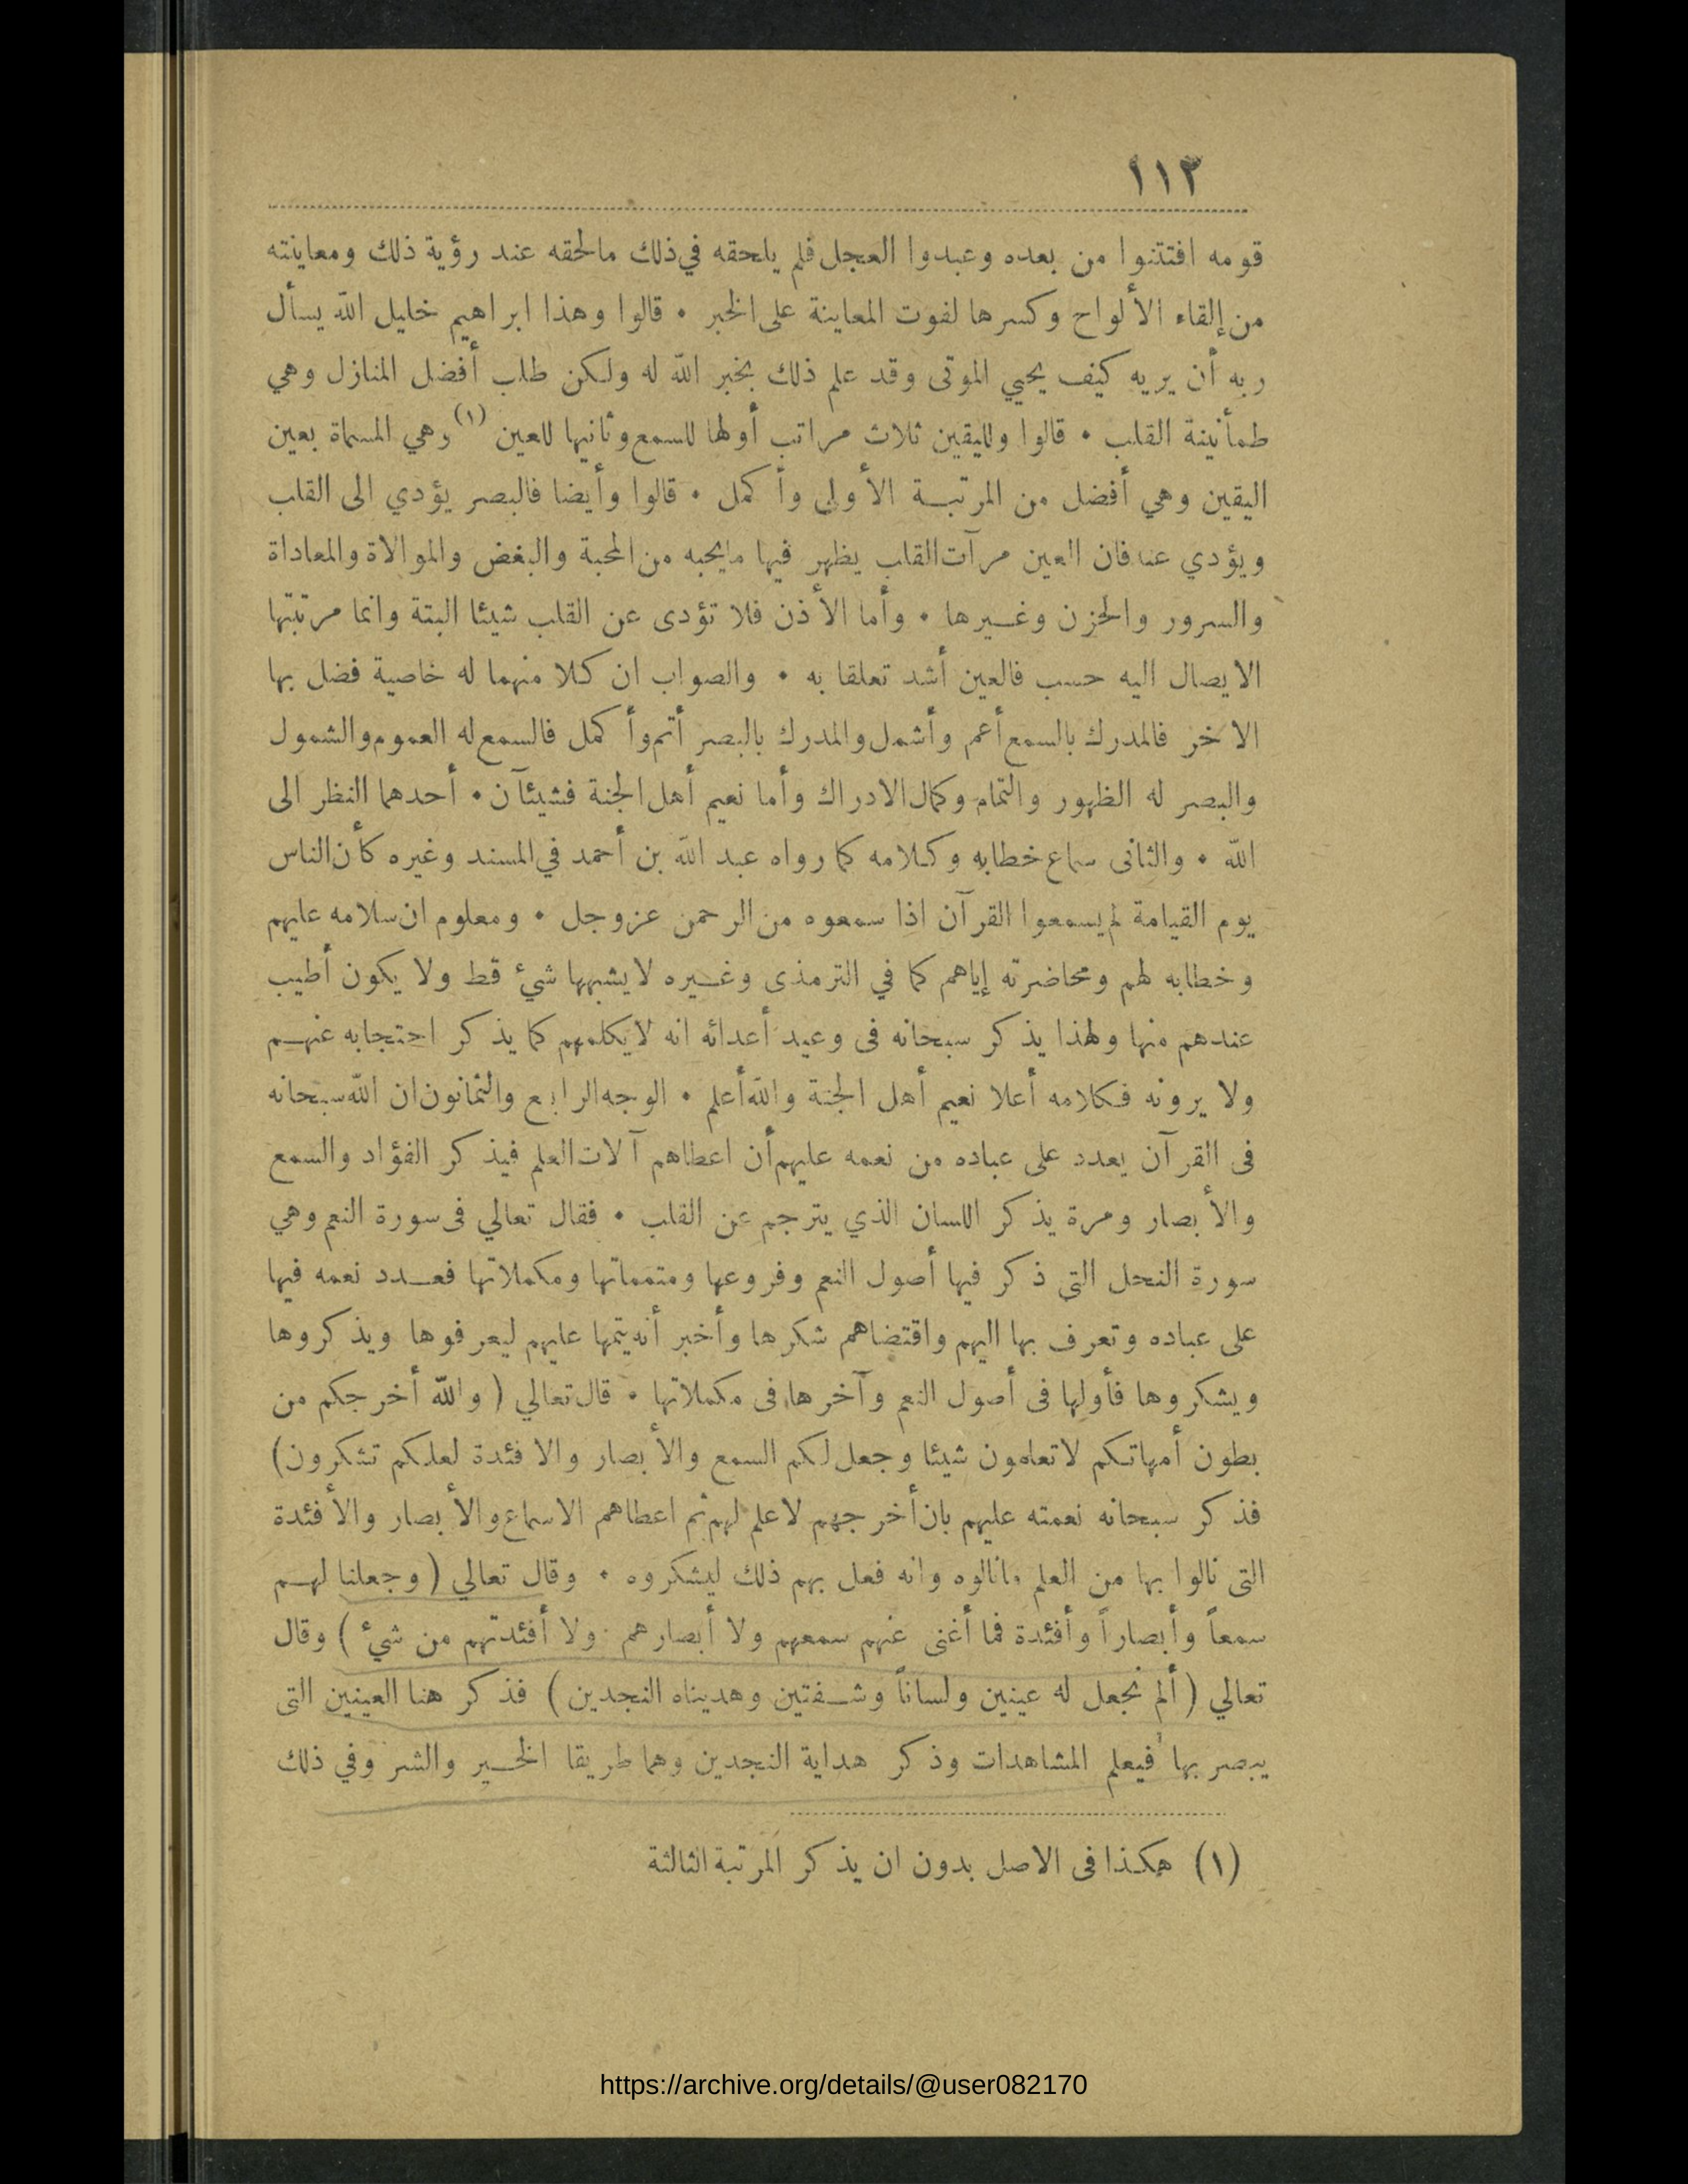 ١١٣
قومه افتتنوا من بعده وعبدوا العجل فلم يلحقه في ذلك مالحقه عند رؤية ذلك ومعاينته
من إلقاء الألواح وكسرها لفوت المعاينة على الخبر • قالوا وهذا ابراهيم خليل الله يسأل
ربه أن يريه كيف يحيي الموتى وقد علم ذلك بخبر الله له ولكن طلب أفضل المنازل وهي
طمأنينة القلب • قالوا ولليقين ثلاث مراتب أولها للسمع وثانيها للعين (١) وهي المسماة بعين
اليقين وهي أفضل من المرتبة الأولى وأكمل • قالوا وأيضا فالبصر يؤدي الى القلب
ويؤدي عنه فان العين مرآت القلب يظهر فيها مايحبه من المحبة والبغض والموالاة والمعاداة
والسرور والحزن وغيرها • وأما الأذن فلا تؤدى عن القلب شيئا البتة وانما مرتبتها
الايصال اليه حسب فالعين أشد تعلقا به • والصواب ان كلا منهما له خاصية فضل بها
الاخر فالمدرك بالسمع أعم وأشمل والمدرك بالبصر أتم وأكمل فالسمع له العموم والشمول
والبصر له الظهور والتمام وكمال الادراك وأما نعيم أهل الجنة فشيئآن • أحدهما النظر الى
الله • والثانى سماع خطابه وكلامه كما رواه عبد الله بن أحمد في المسند وغيره كأن الناس
يوم القيامة لم يسمعوا القرآن اذا سمعوه من الرحمن عزوجل • ومعلوم ان سلامه عليهم
وخطابه لهم ومحاضرته إياهم كما في الترمذى وغيره لايشبهها شيء قط ولا يكون أطيب
عندهم منها ولهذا يذكر سبحانه فى وعيد أعدائه انه لايكلمهم كما يذكر احتجابه عنهم
ولا يرونه فكلامه أعلا نعيم أهل الجنة والله أعلم • الوجه الرابع والثمانون ان الله سبحانه
فى القرآن يعدد على عباده من نعمه عليهم أن اعطاهم آلات العلم فيذكر الفؤاد والسمع
والأبصار ومرة يذكر اللسان الذي يترجم عن القلب • فقال تعالي فى سورة النعم وهي
سورة النحل التي ذكر فيها أصول النعم وفروعها ومتمماتها ومكملاتها فعدد نعمه فيها
على عباده وتعرف بها اليهم واقتضاهم شكرها وأخبر أنه يتمها عليهم ليعرفوها ويذكروها
ويشكروها فأولها فى أصول النعم وآخرها فى مكملاتها • قال تعالي ( والله أخرجكم من
بطون أمهاتكم لاتعلمون شيئا وجعل لكم السمع والأبصار والافئدة لعلكم تشكرون)
فذكر سبحانه نعمته عليهم بان أخرجهم لاعلم لهم ثم اعطاهم الاسماع والأبصار والأفئدة
التى نالوا بها من العلم مانالوه وانه فعل بهم ذلك ليشكروه • وقال تعالي ( وجعلنا لهم
سمعاً وأبصاراً وأفئدة فما أغنى عنهم سمعهم ولا أبصارهم ولا أفئدتهم من شيء ) وقال
تعالي ( ألم نجعل له عينين ولساناً وشفتين وهديناه النجدين ) فذكر هنا العينين التى
يبصر بها فيعلم المشاهدات وذكر هداية النجدين وهما طريقا الخير والشر وفي ذلك
(١) هكذا فى الاصل بدون ان يذكر المرتبة الثالثة
https://archive.org/details/@user082170